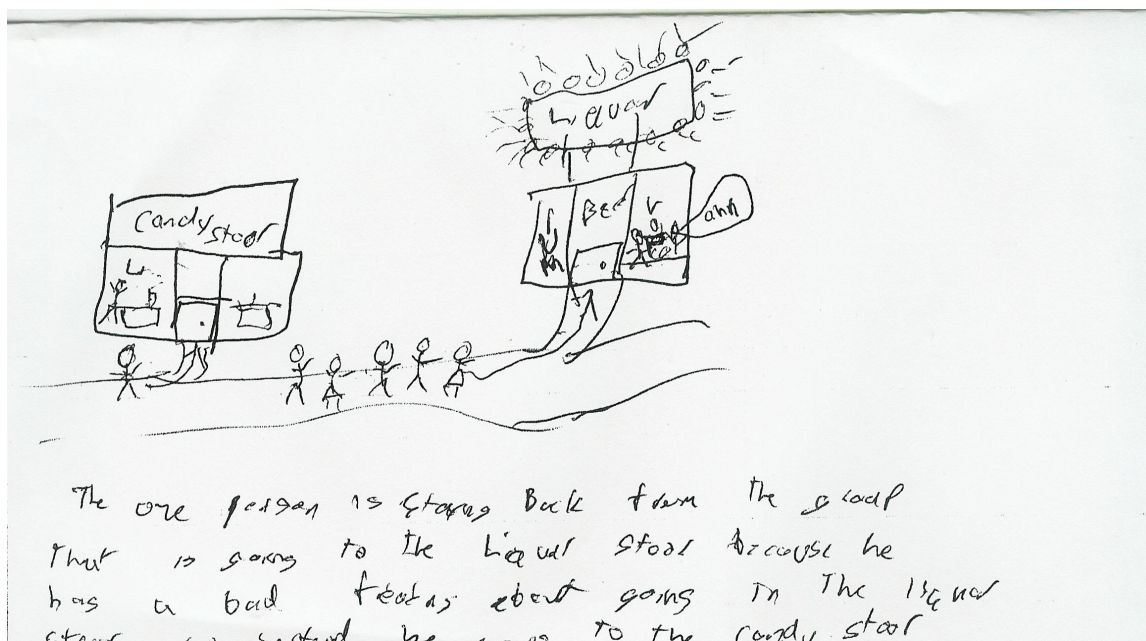 Liquor
Candy
stoor
Beer
ahh
The one person is staying Back from the group
That is going to the Liquor stoor because he
has a bad feeling about going in The liquor
he to the candy stoor